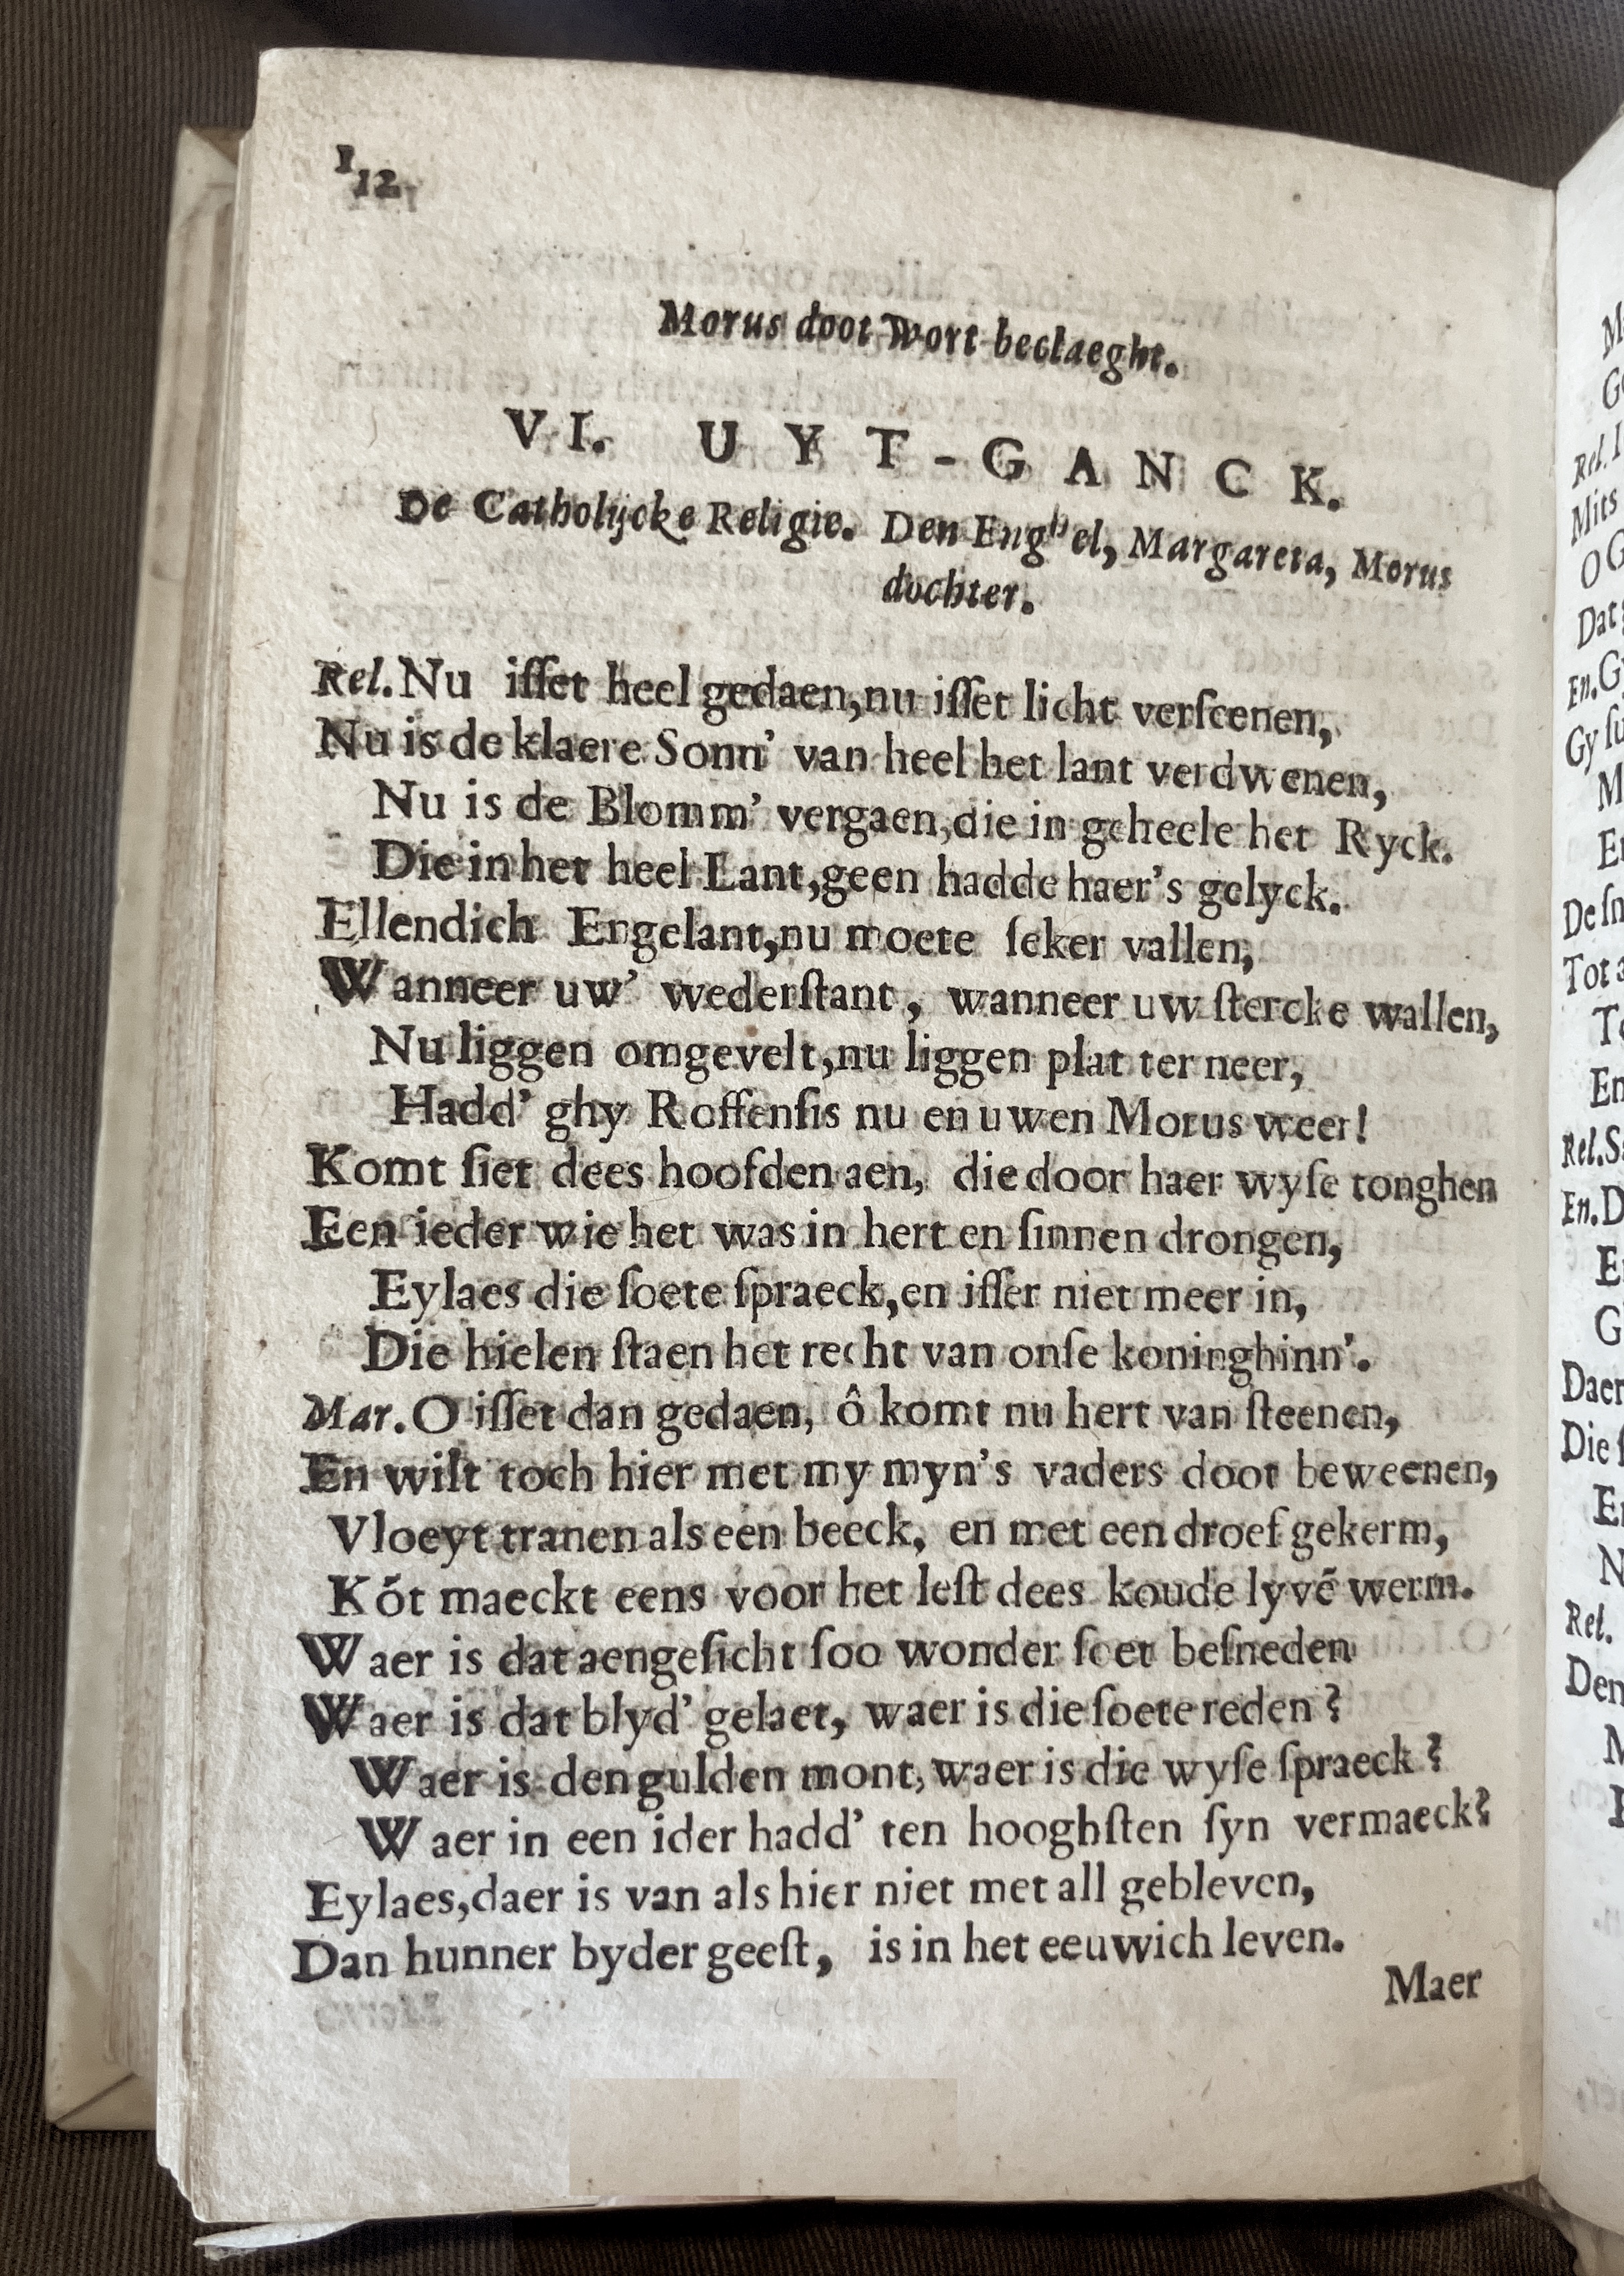 112
Morus doot wort beclaeght.
VI. UYT-GANCK.
De Catholijcke Religie. Den Enghel, Margareta, Morus
dochter.
Rel. Nu iſſet heel gedaen, nu iſſet licht verſcenen,
Nu is de klaere Sonn' van heel het lant verdwenen,
Nu is de Blomm' vergaen, die in geheele het Ryck.
Die in het heel Lant, geen hadde haer's gelyck.
Ellendich Engelant, nu moete ſeker vallen,
Wanneer uw' wederſtant, wanneer uw ſtercke wallen,
Nu liggen omgevelt, nu liggen plat ter neer,
Hadd' ghy Roffenſis nu en uwen Morus weer!
Komt ſiet dees hoofden aen, die door haer wyſe tonghen
Een ieder wie het was in hert en ſinnen drongen,
Eylaes die ſoete ſpraeck, en iſſer niet meer in,
Die hielen ſtaen het recht van onſe koninghinn'.
Mar. O iſſet dan gedaen, ô komt nu hert van ſteenen,
En wilt toch hier met my myn's vaders doot beweenen,
Vloeyt tranen als een beeck, en met een droef gekerm,
Kōt maeckt eens voor het leſt dees koude lyvē werm.
Waer is dat aengeſicht ſoo wonder ſoet beſneden
Waer is dat blyd' gelaet, waer is die ſoete reden?
Waer is den gulden mont, waer is die wyſe ſpraeck?
Waer in een ider hadd' ten hooghſten ſyn vermaeck?
Eylaes, daer is van als hier niet met all gebleven,
Dan hunner byder geeſt, is in het eeuwich leven.
Maer
Rel.
Mits
Dat
En.
Gy
De
Tot
Rel.
En.
Daer
Die
Rel.
Den